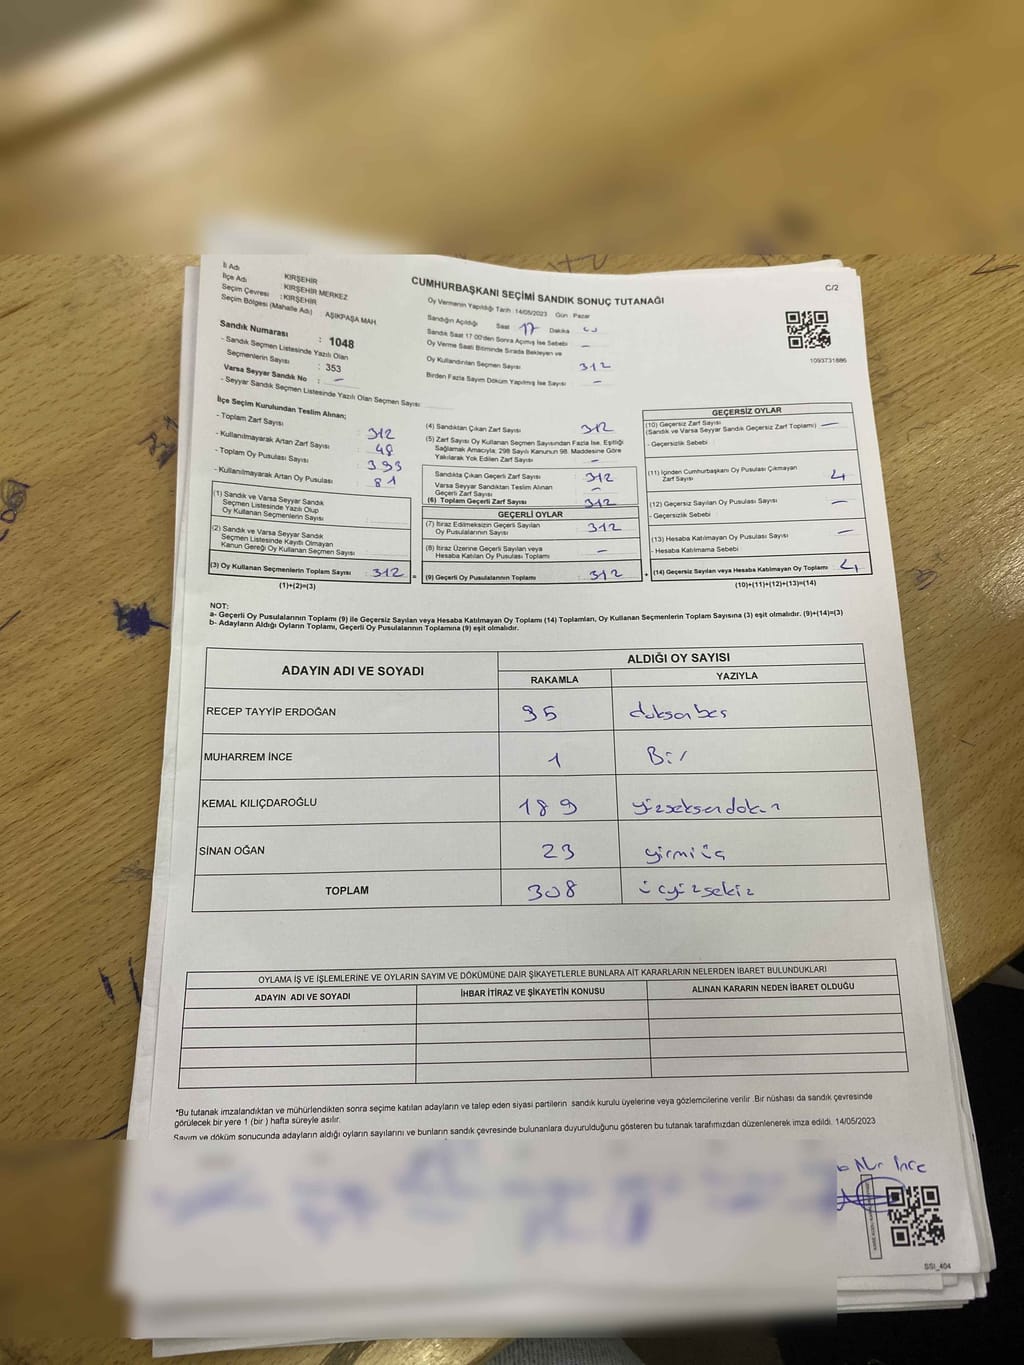 İl Adı : KIRŞEHİR
İlçe Adı : KIRŞEHİR MERKEZ
Seçim Çevresi : KIRŞEHİR
Seçim Bölgesi (Mahalle Adı) : AŞIKPAŞA MAH.
Sandık Numarası : 1048
- Sandık Seçmen Listesinde Yazılı Olan
Seçmenlerin Sayısı : 353
Varsa Seyyar Sandık No : –
- Seyyar Sandık Seçmen Listesinde Yazılı Olan Seçmen Sayısı :
CUMHURBAŞKANI SEÇİMİ SANDIK SONUÇ TUTANAĞI
C/2
Oy Vermenin Yapıldığı Tarih : 14/05/2023 Gün : Pazar
Sandığın Açıldığı Saat : 17 Dakika :
Sandık Saat 17:00'den Sonra Açılmış İse Sebebi : –
Oy Verme Saati Bitiminde Sırada Bekleyen ve
Oy Kullandırılan Seçmen Sayısı : 312
Birden Fazla Sayım Döküm Yapılmış İse Sayısı : –
1093731886
İlçe Seçim Kurulundan Teslim Alınan;
- Toplam Zarf Sayısı : 312
- Kullanılmayarak Artan Zarf Sayısı : 48
- Toplam Oy Pusulası Sayısı : 393
- Kullanılmayarak Artan Oy Pusulası : 81
(1) Sandık ve Varsa Seyyar Sandık
Seçmen Listesinde Yazılı Olup
Oy Kullanan Seçmenlerin Sayısı :
(2) Sandık ve Varsa Seyyar Sandık
Seçmen Listesinde Kayıtlı Olmayan
Kanun Gereği Oy Kullanan Seçmen Sayısı :
(3) Oy Kullanan Seçmenlerin Toplam Sayısı : 312
(1)+(2)=(3)
(4) Sandıktan Çıkan Zarf Sayısı : 312
(5) Zarf Sayısı Oy Kullanan Seçmen Sayısından Fazla İse, Eşitliği
Sağlamak Amacıyla; 298 Sayılı Kanunun 98. Maddesine Göre
Yakılarak Yok Edilen Zarf Sayısı : –
Sandıkta Çıkan Geçerli Zarf Sayısı : 312
Varsa Seyyar Sandıktan Teslim Alınan
Geçerli Zarf Sayısı : –
(6) Toplam Geçerli Zarf Sayısı : 312
GEÇERLİ OYLAR
(7) İtiraz Edilmeksizin Geçerli Sayılan
Oy Pusulalarının Sayısı : 312
(8) İtiraz Üzerine Geçerli Sayılan veya
Hesaba Katılan Oy Pusulası Toplamı : –
= (9) Geçerli Oy Pusulalarının Toplamı : 312
GEÇERSİZ OYLAR
(10) Geçersiz Zarf Sayısı : –
(Sandık ve Varsa Seyyar Sandık Geçersiz Zarf Toplamı)
- Geçersizlik Sebebi :
(11) İçinden Cumhurbaşkanı Oy Pusulası Çıkmayan
Zarf Sayısı : 4
(12) Geçersiz Sayılan Oy Pusulası Sayısı : –
- Geçersizlik Sebebi :
(13) Hesaba Katılmayan Oy Pusulası Sayısı : –
- Hesaba Katılmama Sebebi :
+ (14) Geçersiz Sayılan veya Hesaba Katılmayan Oy Toplamı : 4
(10)+(11)+(12)+(13)=(14)
NOT:
a- Geçerli Oy Pusulalarının Toplamı (9) ile Geçersiz Sayılan veya Hesaba Katılmayan Oy Toplamı (14) Toplamları, Oy Kullanan Seçmenlerin Toplam Sayısına (3) eşit olmalıdır. (9)+(14)=(3)
b- Adayların Aldığı Oyların Toplamı, Geçerli Oy Pusulalarının Toplamına (9) eşit olmalıdır.
ADAYIN ADI VE SOYADI ALDIĞI OY SAYISI
RAKAMLA YAZIYLA
RECEP TAYYİP ERDOĞAN 95 doksanbeş
MUHARREM İNCE 1 Bir
KEMAL KILIÇDAROĞLU 189 yüzseksendokuz
SİNAN OĞAN 23 yirmiüç
TOPLAM 308 üçyüzsekiz
OYLAMA İŞ VE İŞLEMLERİNE VE OYLARIN SAYIM VE DÖKÜMÜNE DAİR ŞİKAYETLERLE BUNLARA AİT KARARLARIN NELERDEN İBARET BULUNDUKLARI
ADAYIN ADI VE SOYADI İHBAR İTİRAZ VE ŞİKAYETİN KONUSU ALINAN KARARIN NEDEN İBARET OLDUĞU
*Bu tutanak imzalandıktan ve mühürlendikten sonra seçime katılan adayların ve talep eden siyasi partilerin sandık kurulu üyelerine veya gözlemcilerine verilir .Bir nüshası da sandık çevresinde
görülecek bir yere 1 (bir ) hafta süreyle asılır.
Sayım ve döküm sonucunda adayların aldığı oyların sayılarını ve bunların sandık çevresinde bulunanlara duyurulduğunu gösteren bu tutanak tarafımızdan düzenlenerek imza edildi. 14/05/2023
Nur İnce
SSI_404